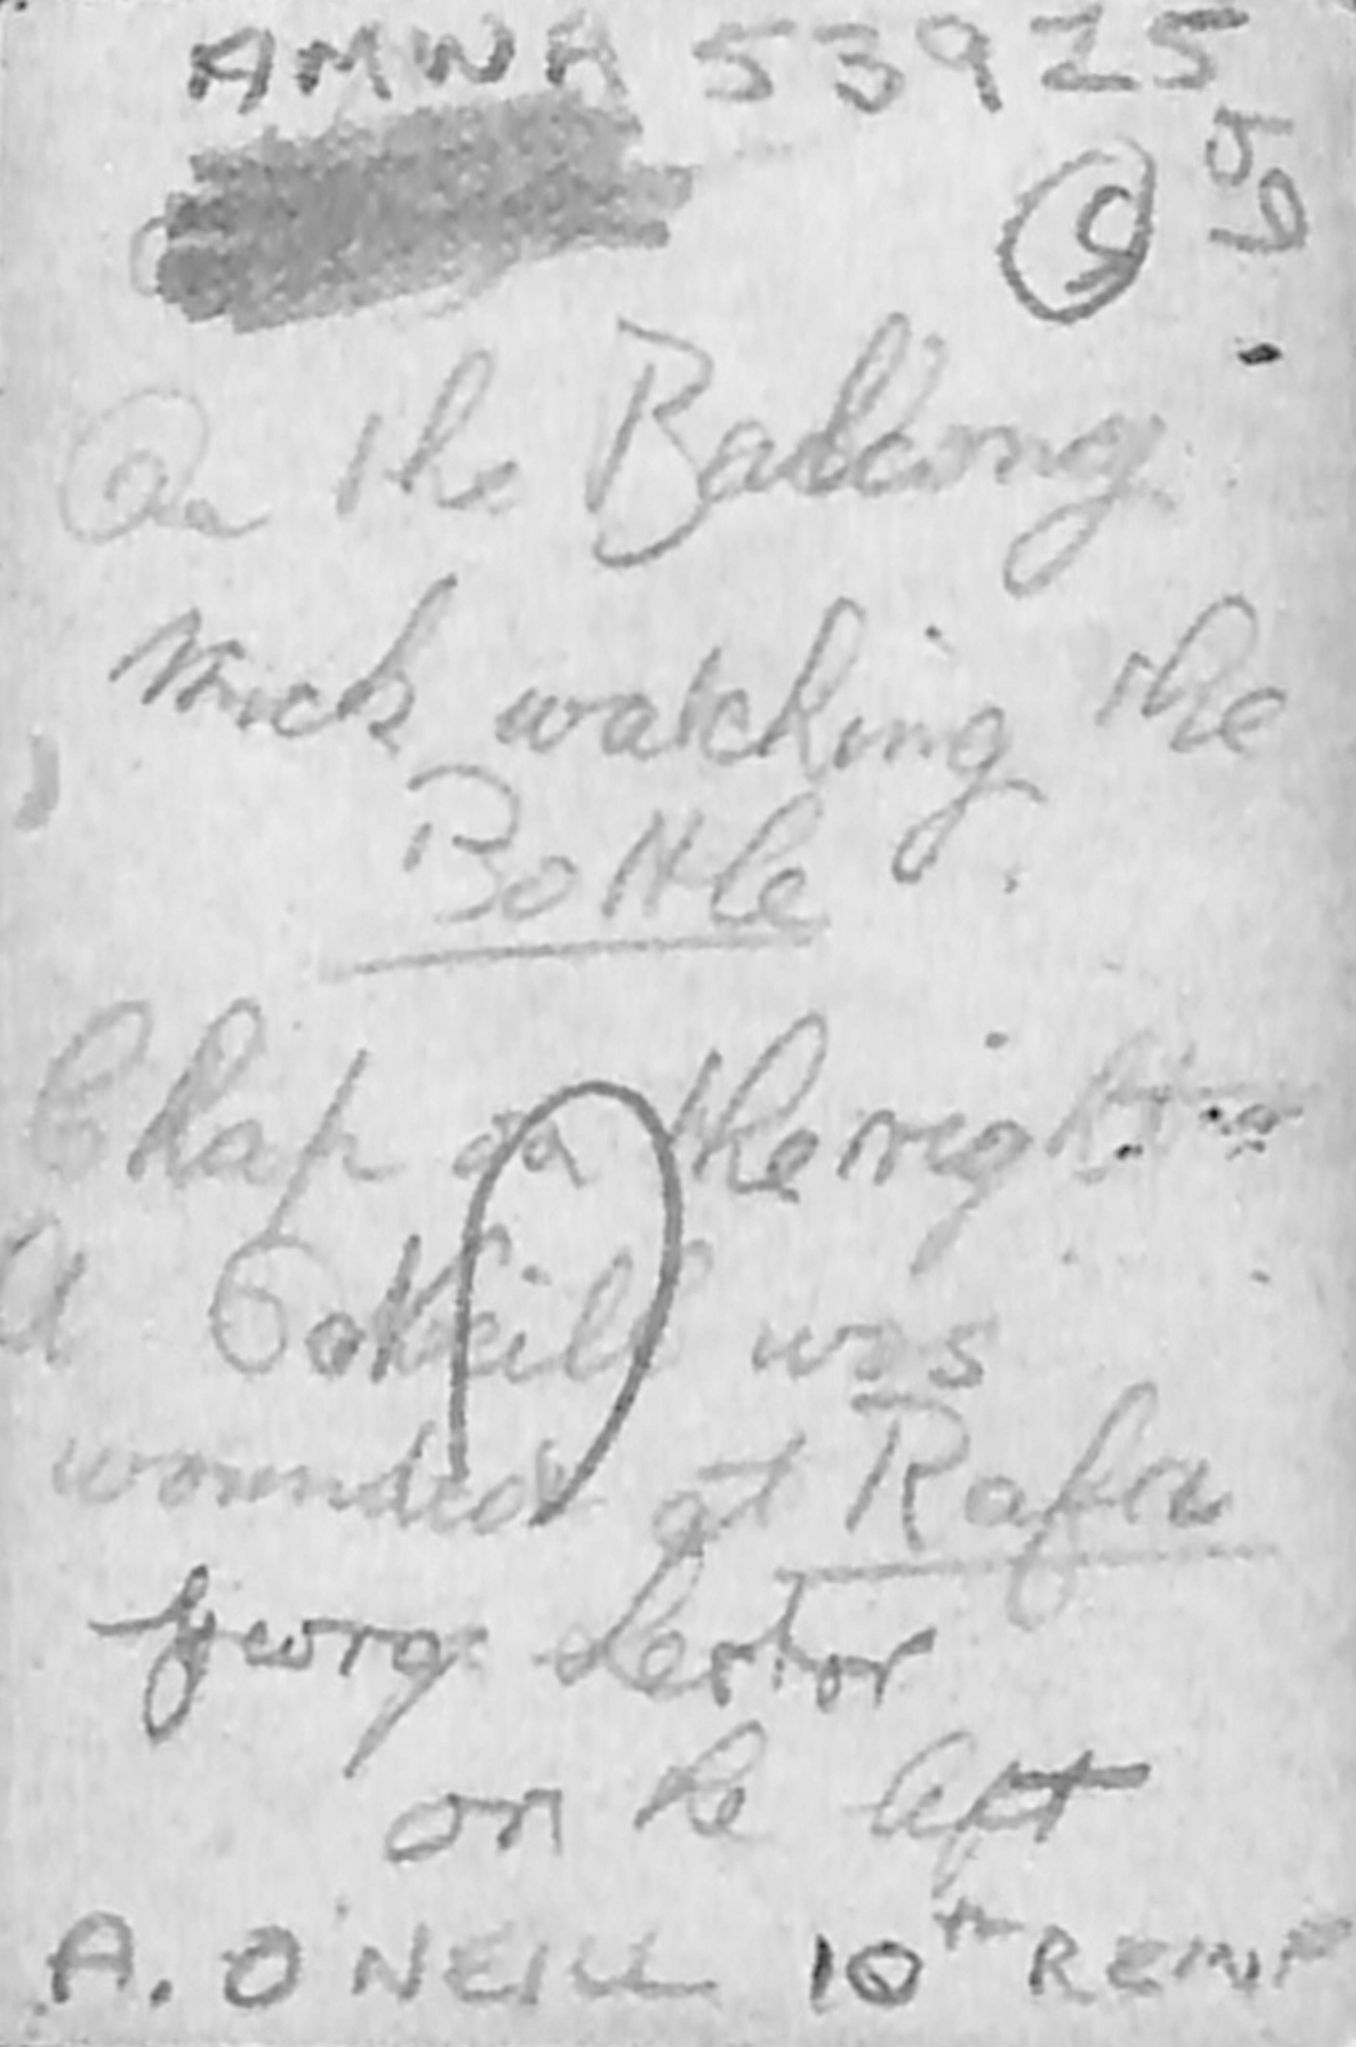 AMWA 53925
59
9
On the Balcony
Mick watching the
Bottle
Chap on the right
A O'Neill was
wounded at Rafa
George Lestor
on he left
A. O'NEILL 10th REINF